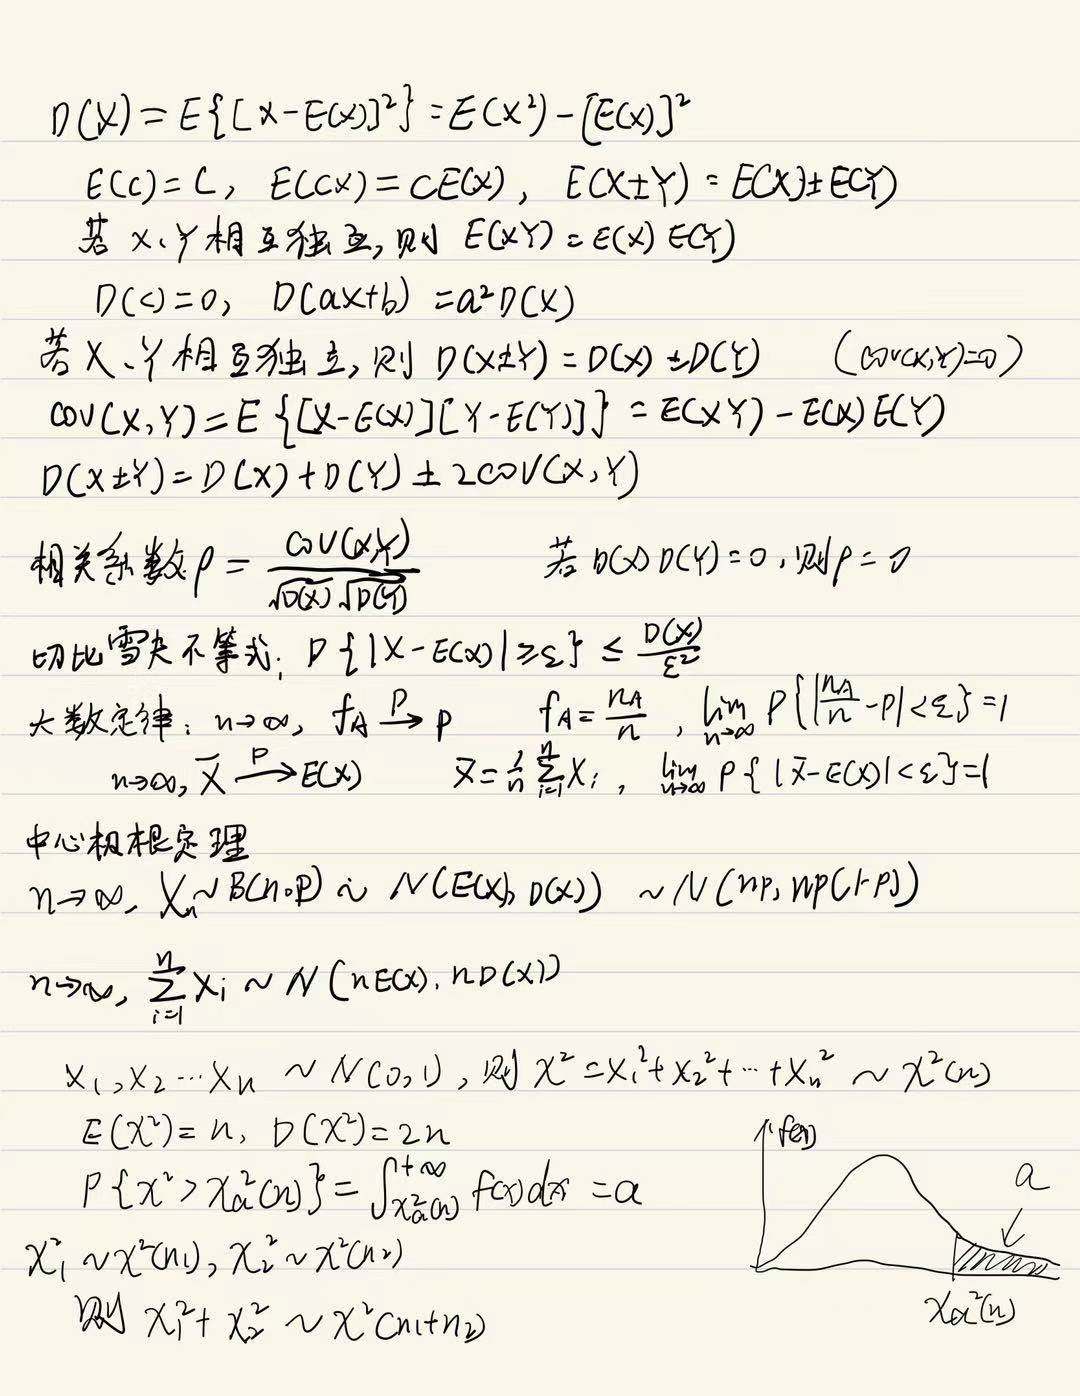 D(X) = E{[X-E(X)]²} = E(X²) - [E(X)]²
E(C) = C, E(CX) = CE(X), E(X±Y) = E(X)±E(Y)
若 X、Y 相互独立, 则 E(XY) = E(X)E(Y)
D(C) = 0, D(aX+b) = a²D(X)
若 X、Y 相互独立, 则 D(X±Y) = D(X) ± D(Y) (COV(X,Y)=0)
COV(X,Y) = E{[X-E(X)][Y-E(Y)]} = E(XY) - E(X)E(Y)
D(X±Y) = D(X) + D(Y) ± 2COV(X,Y)
相关系数 ρ = COV(X,Y) / √D(X) √D(Y) 若 D(X)D(Y) = 0, 则 ρ = 0
切比雪夫不等式: D{|X-E(X)|≥ε} ≤ D(X)/ε²
大数定律: n→∞, f_A →(P) p f_A = n_A/n, lim_{n→∞} P{|n_A/n - p|<ε} = 1
n→∞, X̄ →(P) E(X) X̄ = 1/n ∑_{i=1}^{n} X_i, lim_{n→∞} P{|X̄-E(X)|<ε} = 1
中心极根定理
n→∞, X_n ~ B(n,p) ~ N(E(X), D(X)) ~ N(np, np(1-p))
n→∞, ∑_{i=1}^{n} X_i ~ N(nE(X), nD(X))
X₁, X₂ … X_n ~ N(0,1), 则 χ² = X₁² + X₂² + … + X_n² ~ χ²(n)
E(χ²) = n, D(χ²) = 2n
f(x)
P{χ² > χ²_a(n)} = ∫_{χ²_a(n)}^{+∞} f(x)dx = a
a
χ₁² ~ χ²(n₁), χ₂² ~ χ²(n₂)
χ_a²(n)
则 χ₁² + χ₂² ~ χ²(n₁+n₂)